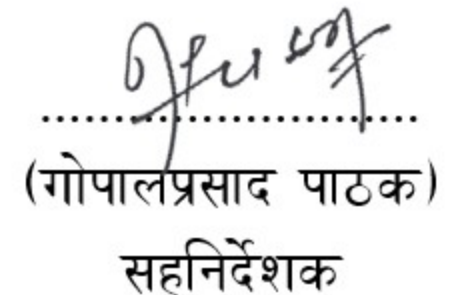 ..............................
(गोपालप्रसाद पाठक)
सहनिर्देशक